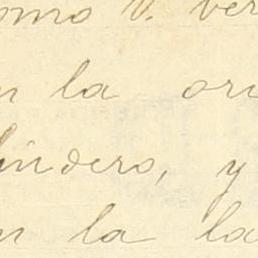 omo V. ver
n la ori
lindero, y
n la la